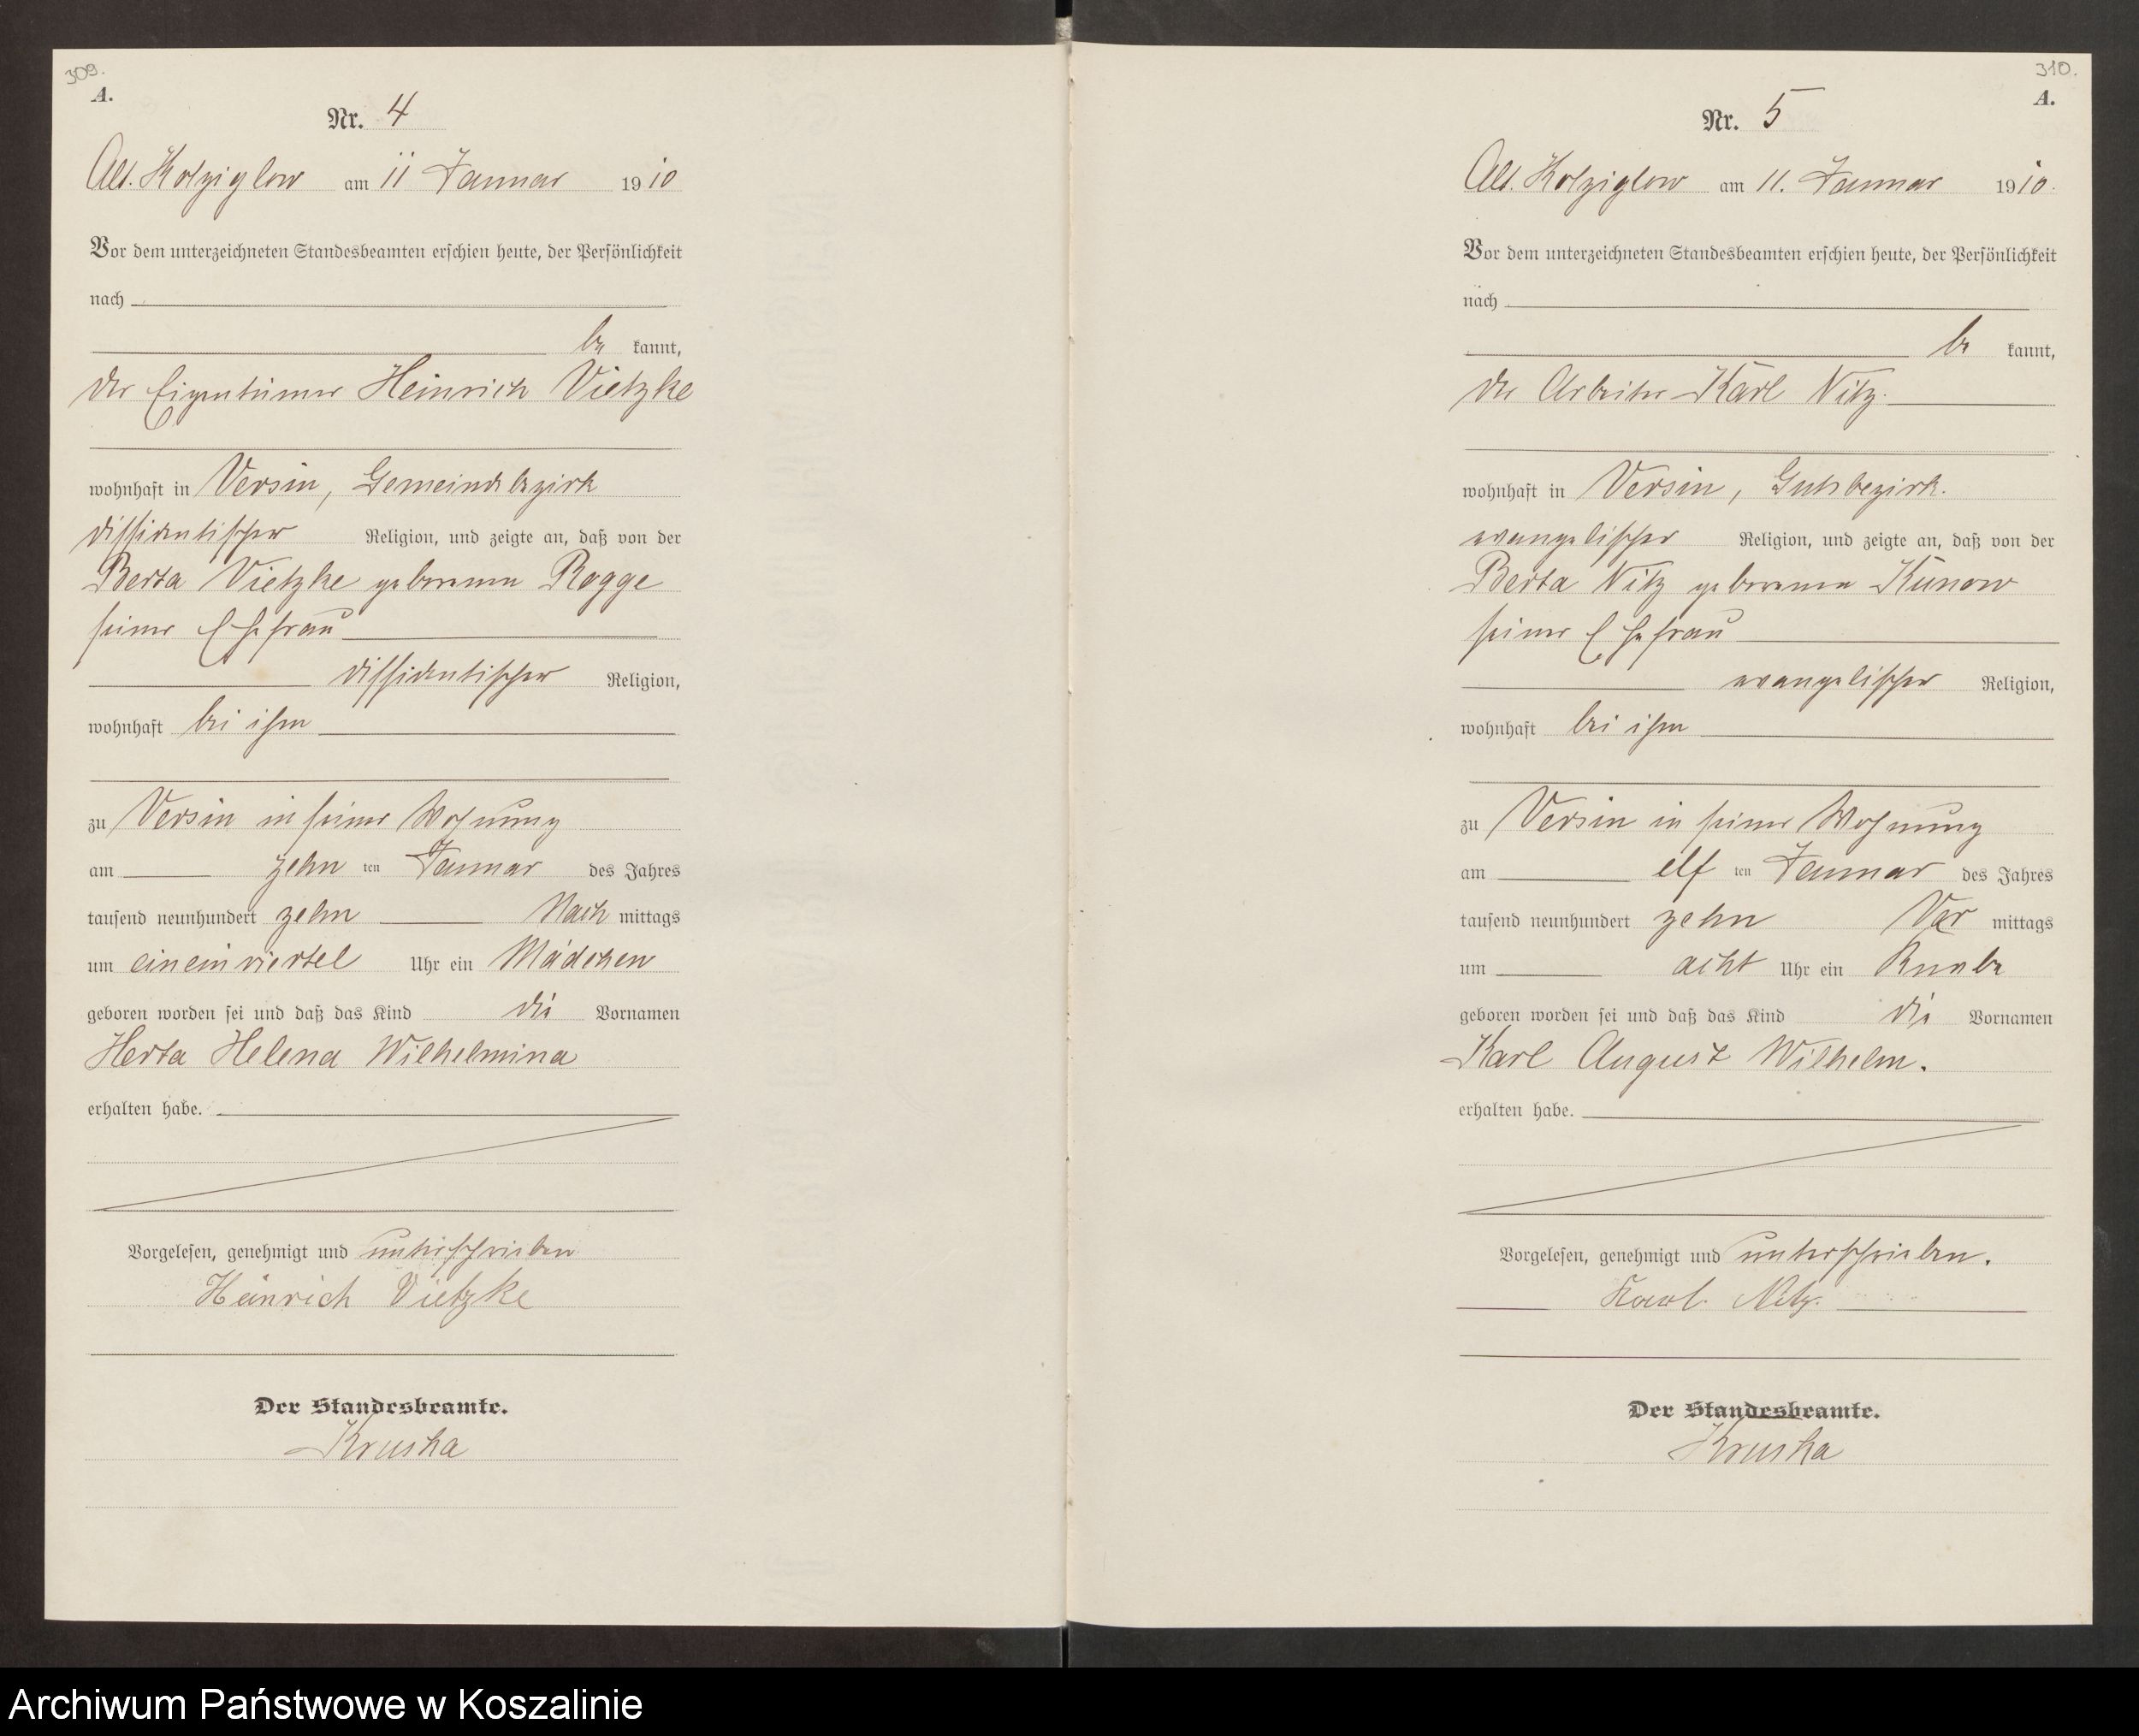 309.
A.
Nr. 4
Alt. Kolziglow am 11 Januar 1910
Vor dem unterzeichneten Standesbeamten erschien heute, der Persönlichkeit
nach
be kannt,
der Eigentümer Heinrich Vietzke
wohnhaft in Versin, Gemeindebezirk
dissidentischer Religion, und zeigte an, daß von der
Berta Vietzke geborenen Rogge
seiner Ehefrau
dissidentischer Religion,
wohnhaft bei ihm
zu Versin in seiner Wohnung
am zehn ten Januar des Jahres
tausend neunhundert zehn Nach mittags
um eineinviertel Uhr ein Mädchen
geboren worden sei und daß das Kind die Vornamen
Herta Helena Wilhelmina
erhalten habe.
Vorgelesen, genehmigt und unterschrieben
Heinrich Vietzke
Der Standesbeamte.
Kruska
310.
A.
Nr. 5
Alt. Kolziglow am 11. Januar 1910.
Vor dem unterzeichneten Standesbeamten erschien heute, der Persönlichkeit
nach
be kannt,
der Arbeiter Karl Nitz.
wohnhaft in Versin, Gutsbezirk.
evangelischer Religion, und zeigte an, daß von der
Berta Nitz geborenen Kunow
seiner Ehefrau
evangelischer Religion,
wohnhaft bei ihm
zu Versin in seiner Wohnung
am elf ten Januar des Jahres
tausend neunhundert zehn Vor mittags
um acht Uhr ein Knabe
geboren worden sei und daß das Kind die Vornamen
Karl August Wilhelm.
erhalten habe.
Vorgelesen, genehmigt und unterschrieben.
Karl. Nitz.
Der Standesbeamte.
Kruska
Archiwum Państwowe w Koszalinie